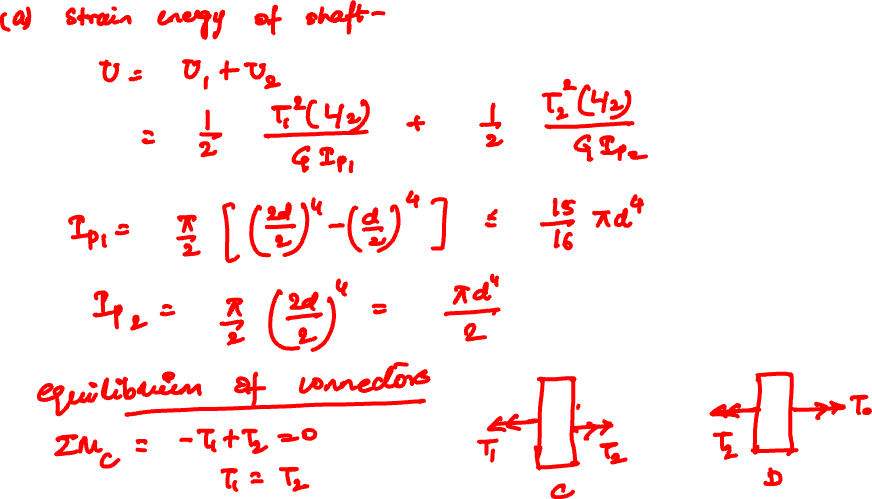 (a) Strain energy of shaft-
U = U₁ + U₂
= 1/2 T₁²(L/2)/(G Ip₁) + 1/2 T₂²(L/2)/(G Ip₂)
Ip₁ = π/2 [(2d/2)⁴ - (d/2)⁴] = 15/16 πd⁴
Ip₂ = π/2 (2d/2)⁴ = πd⁴/2
equilibrium of connectors
ΣM_C = -T₁ + T₂ = 0
T₁ = T₂
T₁ T₂ T₂ T₀
C D